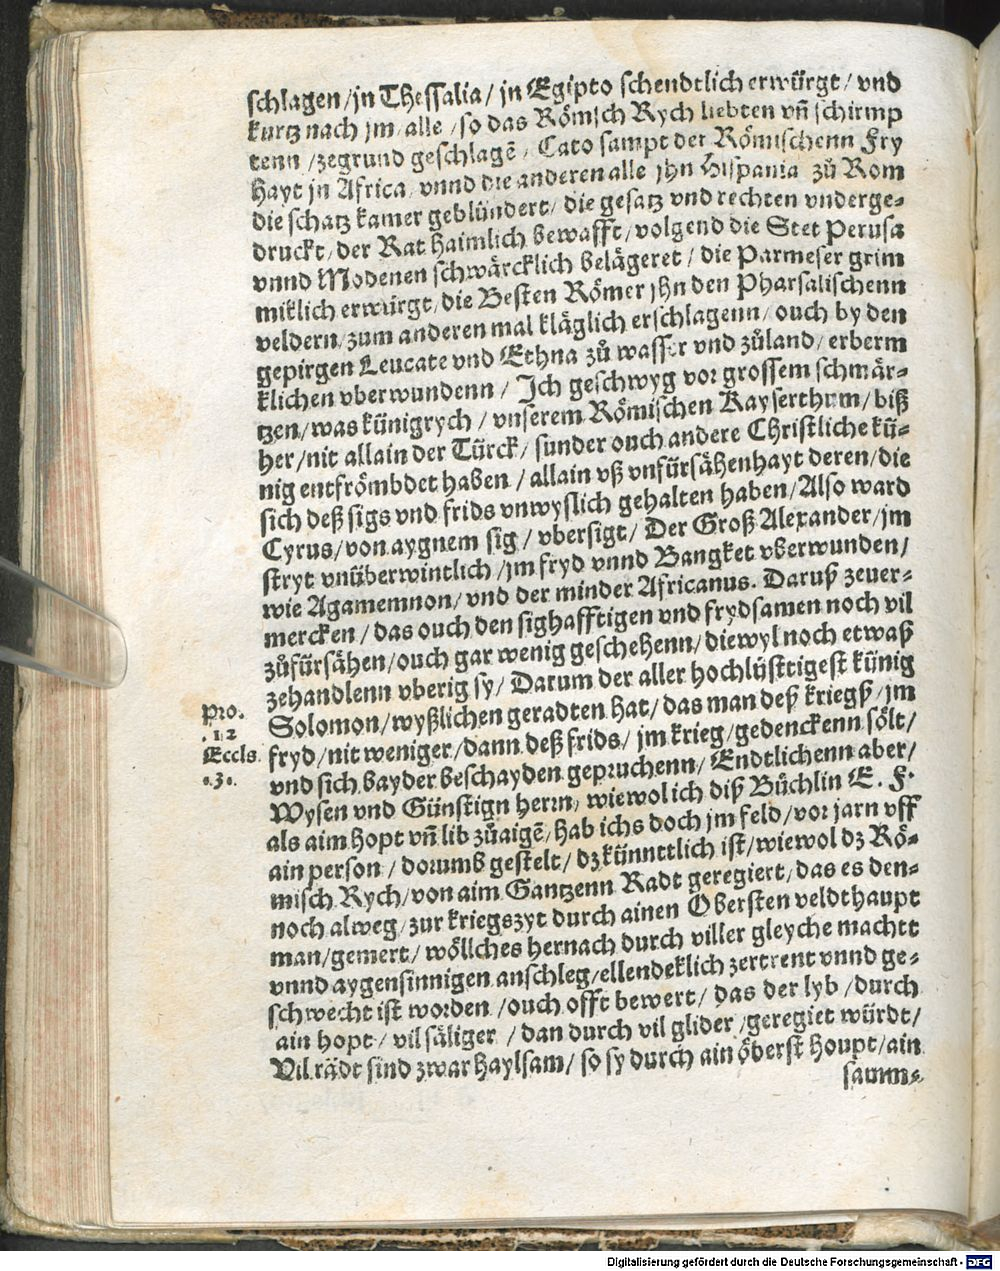 schlagen/jn Thessalia/ jn Egipto schendtlich erwürgt/ vnd
kurtz nach jm/alle/so das Römisch Rych liebten vñ schirmp
tenn/zegrund geschlagẽ, Cato sampt der Römischenn Fry
hayt jn Africa, vnnd die anderen alle jhn Hispania zů Rom
die schatz kamer geblündert/ die gesatz vnd rechten vnderge⸗
druckt, der Rat haimlich bewafft/volgend die Stet Perusa
vnnd Modenen schwärcklich belägeret/ die Parmeser grim
miklich erwürgt, die Besten Römer jhn den Pharsalischenn
veldern/zum anderen mal kläglich erschlagenn/ ouch by den
gepirgen Leucate vnd Ethna zů wasser vnd zůland/ erberm
klichen vberwundenn/ Ich geschwyg vor grossem schmär⸗
tzen/was künigrych/ vnserem Römischen Kayserthum/ biß
her/nit allain der Türck/ sunder ouch andere Christliche kü⸗
nig entfrömbdet haben/ allain vß vnfürsähenhayt deren/die
sich deß sigs vnd frids vnwyslich gehalten haben/Also ward
Cyrus/von aygnem sig/ vbersigt/ Der Groß Alexander/jm
stryt vnüberwintlich/jm fryd vnnd Bangket vberwunden/
wie Agamemnon/ vnd der minder Africanus. Daruß zeuer⸗
mercken/das ouch den sighafftigen vnd frydsamen noch vil
zůfürsähen/ouch gar wenig geschehenn/diewyl noch etwaß
zehandlenn vberig sy/ Darum der aller hochlüsttigest künig
Pro.
.12
Eccls.
.3.
Solomon/wyßlichen geradten hat/das man deß kriegß/jm
fryd/nit weniger/dann deß frids/ jm krieg/gedenckenn sölt/
vnd sich bayder beschayden gepruchenn/ Endtlichenn aber/
Wysen vnd Günstign herrn, wiewol ich diß Büchlin E. F.
als aim hopt vñ lib zůaigẽ/hab ichs doch jm feld/vor jarn vff
ain person/ dorumb gestelt/ dz künnttlich ist/wiewol dz Rö⸗
misch Rych/von aim Gantzenn Radt geregiert/das es den⸗
noch alweg/zur kriegszyt durch ainen Obersten veldthaupt
man/gemert/ wöllches hernach durch viller gleyche machtt
vnnd aygensinnigen anschleg/ellendeklich zertrent vnnd ge⸗
schwecht ist worden/ouch offt bewert/ das der lyb/durch
ain hopt/ vil säliger/ dan durch vil glider/geregiet würdt/
Vil rädt sind zwar haylsam/ so sy durch ain öberst houpt/ain
samm⸗
Digitalisierung gefördert durch die Deutsche Forschungsgemeinschaft - DFG